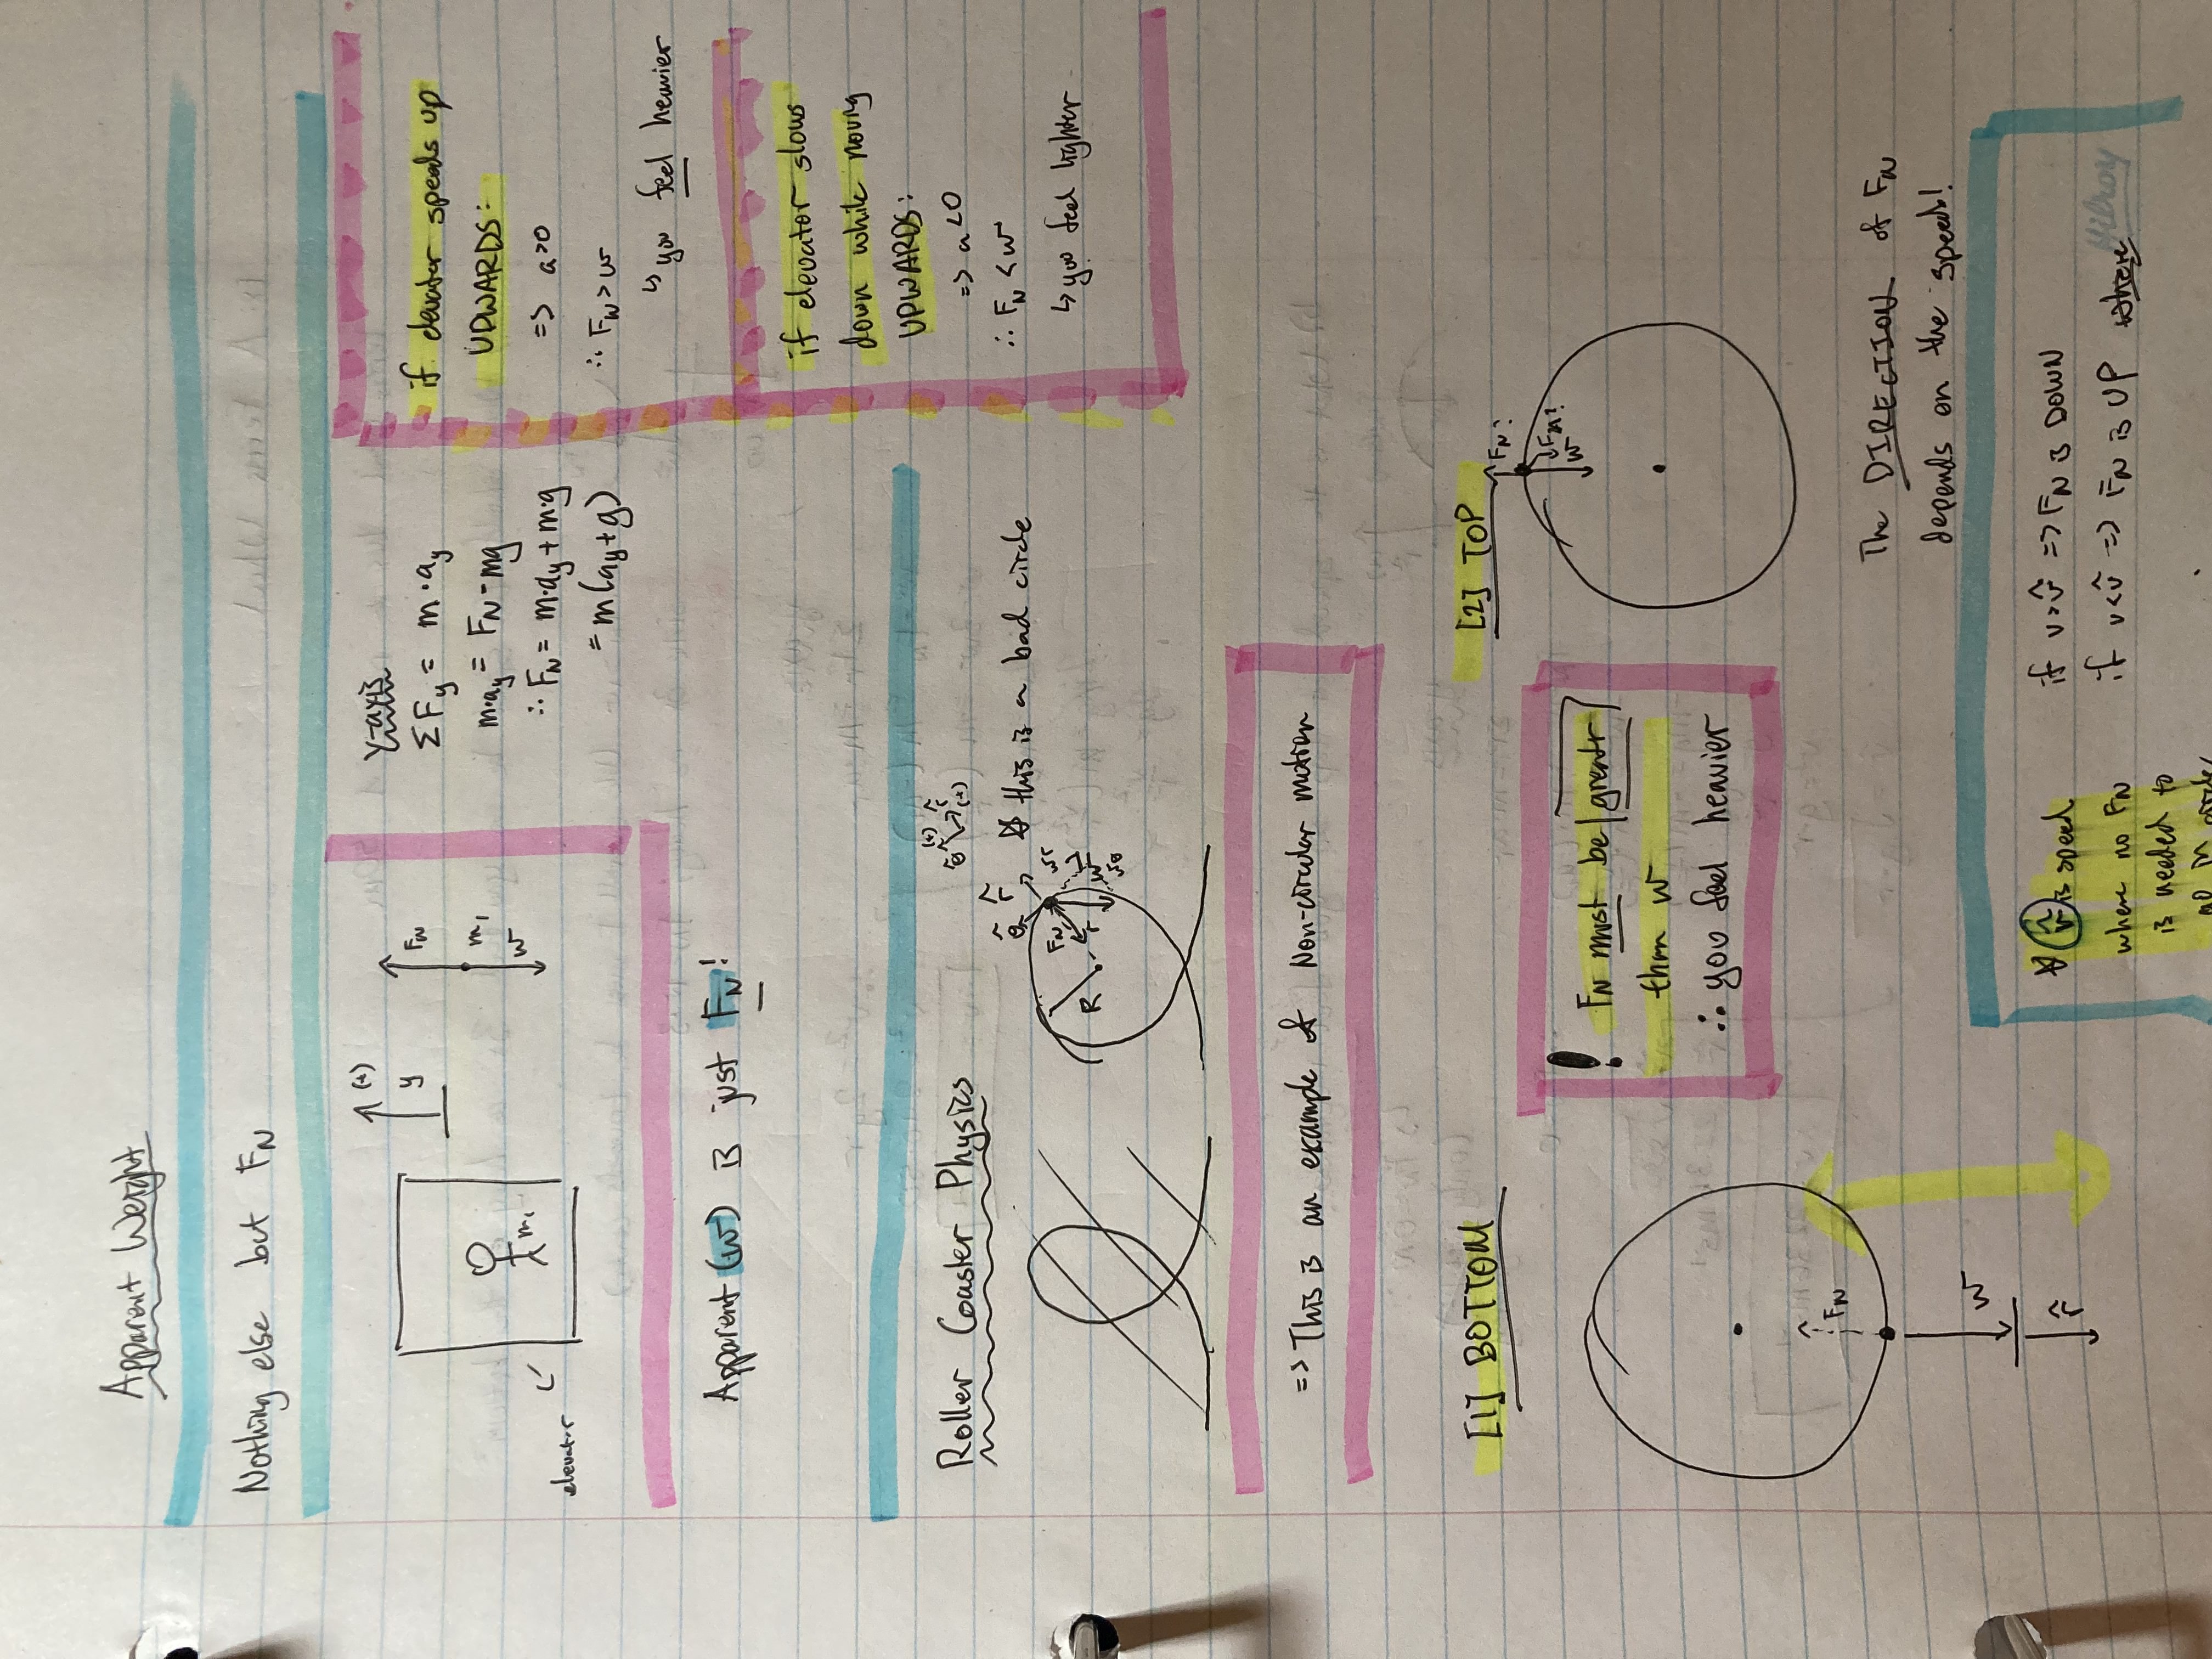 Apparent Weight
Nothing else but F_N
(+)
y
F_N
m₁
w
m₁
elevator
y-axis
ΣF_y = m·a_y
m·a_y = F_N - mg
∴ F_N = m·a_y + m·g
= m(a_y + g)
if elevator speeds up
UPWARDS:
=> a>0
∴ F_N > w
↳ you feel heavier
Apparent (w) is just F_N!
if elevator slows
down while moving
UPWARDS:
=> a<0
∴ F_N < w
↳ you feel lighter
Roller Coaster Physics
(+) r̂
θ̂ (+)
θ̂ r̂
☆ this is a bad circle
F_N
w_r
R
r
w
w_θ
=> This is an example of Non-circular motion
[1] BOTTOM
[2] TOP
F_N?
F_N?
w
! F_N must be greatr
than w
∴ you feel heavier
F_N
w
r̂
The DIRECTION of F_N
depends on the speed!
☆ v̂ is speed
where no F_N
is needed to
go in circle
if v>v̂ => F_N is DOWN
if v<v̂ => F_N is UP where
Hilroy